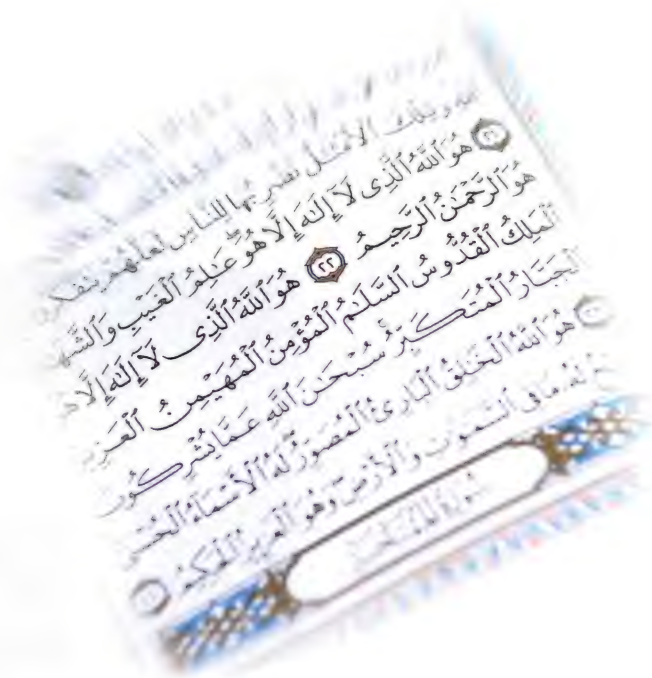 الله وتلك الأمثـل نضربها للناس لعلهم يتفكرون
٢١ هُوَ ٱللَّهُ ٱلَّذِى لَآ إِلَـٰهَ إِلَّا هُوَ عَـٰلِمُ ٱلْغَيْبِ وَٱلشَّهَـ
هُوَ ٱلرَّحْمَـٰنُ ٱلرَّحِيمُ ٢٢ هُوَ ٱللَّهُ ٱلَّذِى لَآ إِلَـٰهَ إِلَّا هُوَ
ٱلْمَلِكُ ٱلْقُدُّوسُ ٱلسَّلَـٰمُ ٱلْمُؤْمِنُ ٱلْمُهَيْمِنُ ٱلْعَزِيزُ
ٱلْجَبَّارُ ٱلْمُتَكَبِّرُ سُبْحَـٰنَ ٱللَّهِ عَمَّا يُشْرِكُونَ
هُوَ ٱللَّهُ ٱلْخَـٰلِقُ ٱلْبَارِئُ ٱلْمُصَوِّرُ لَهُ ٱلْأَسْمَآءُ ٱلْحُسْنَىٰ
لَهُۥ مَا فِى ٱلسَّمَـٰوَٰتِ وَٱلْأَرْضِ وَهُوَ ٱلْعَزِيزُ ٱلْحَكِيمُ
سُورَةُ ٱلْمُمْتَحَنَةِ